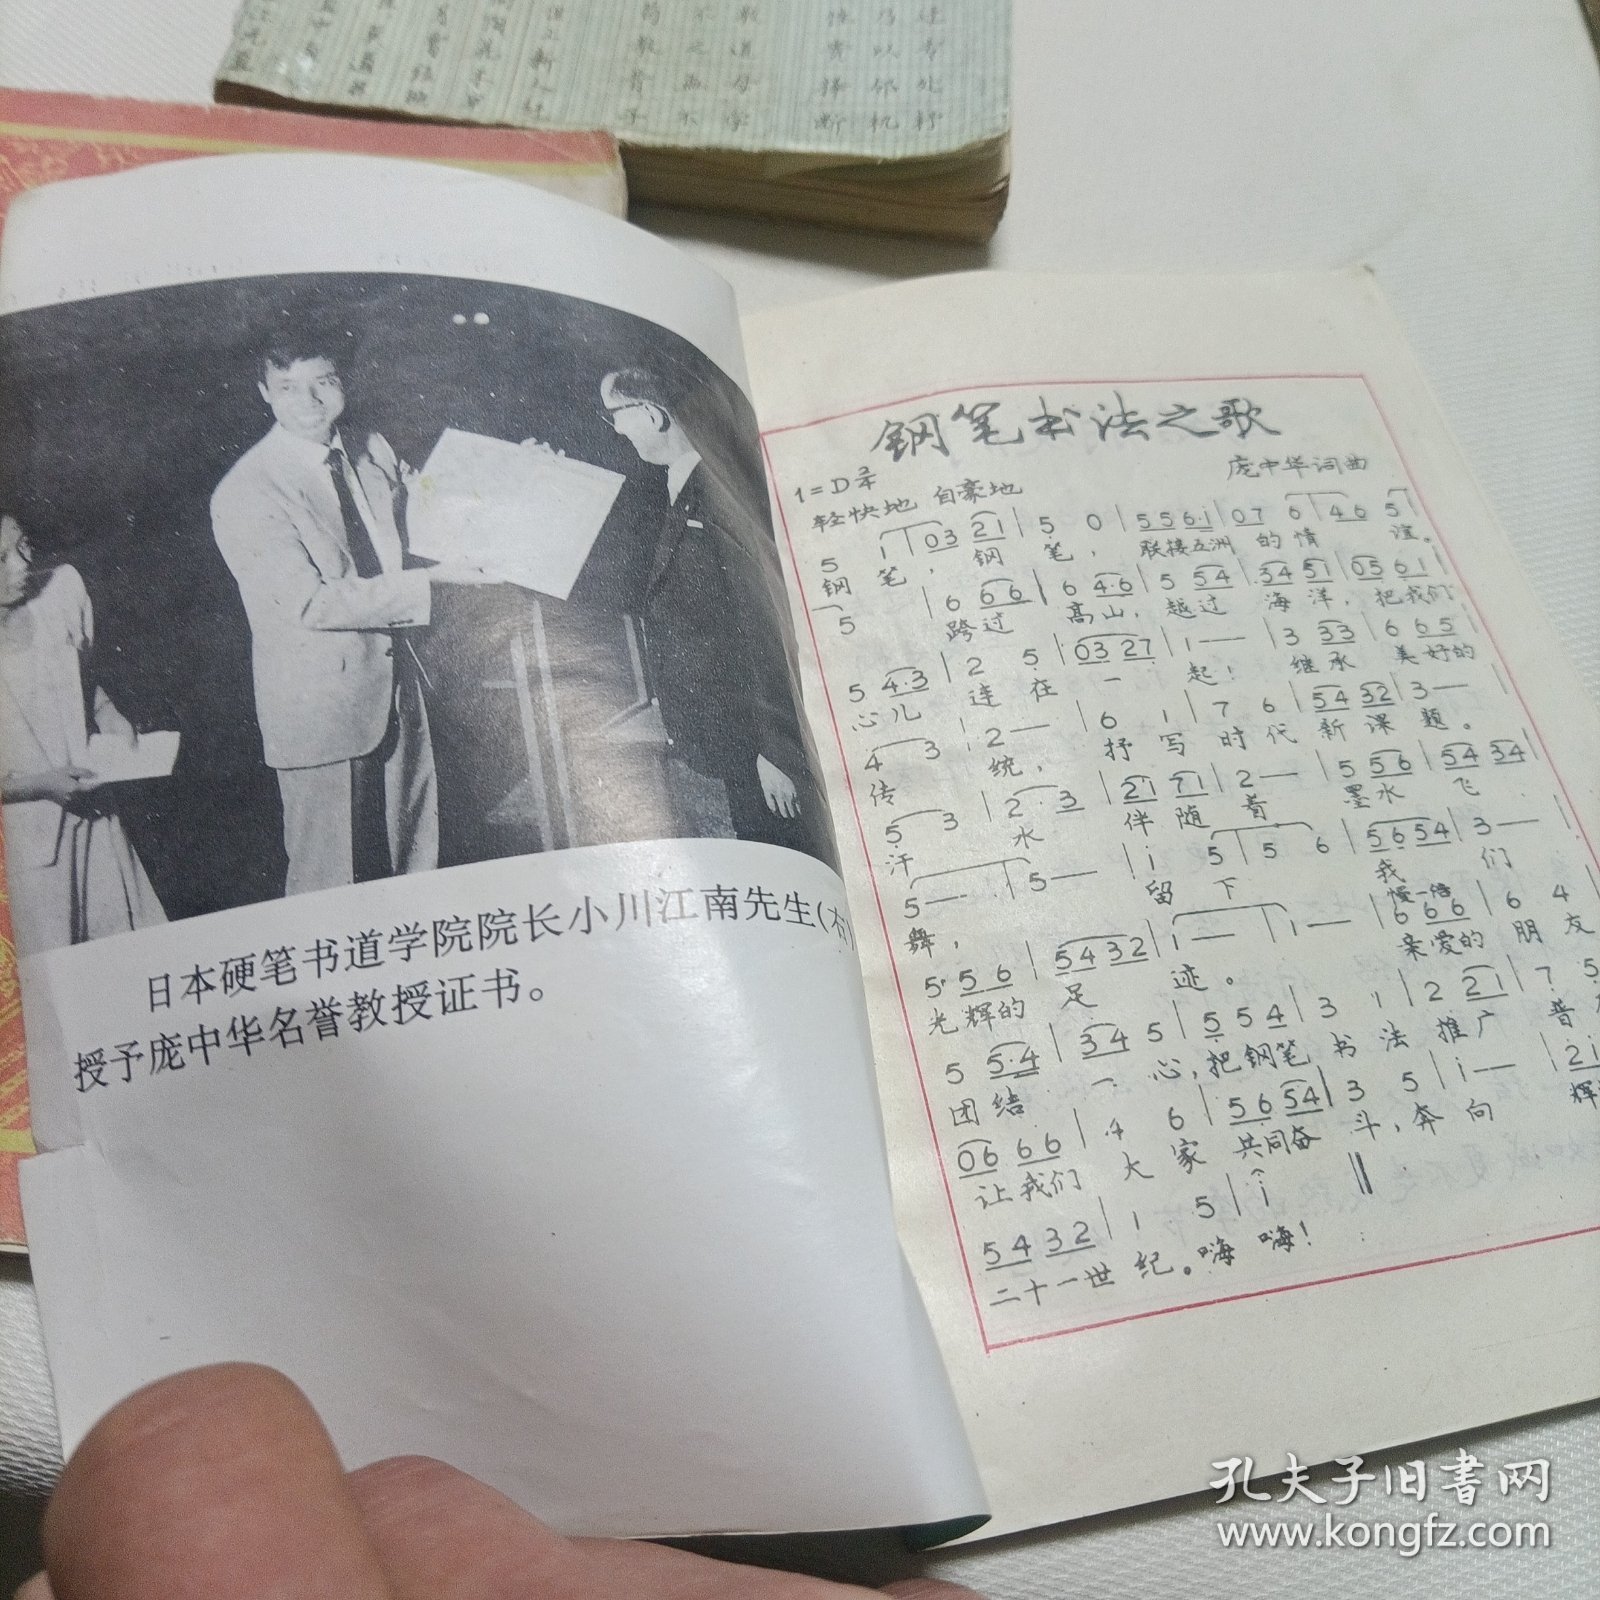 日本硬笔书道学院院长小川江南先生(右)
授予庞中华名誉教授证书。
钢笔书法之歌
庞中华词曲
1=D 2/4
轻快地 自豪地
5 1 | 03 21 | 5 0 | 556·1 | 07 6 | 46 5 |
钢笔,钢笔,联接五洲的情谊。
5 | 6 66 | 6 4·6 | 5 54 | 34 51 | 05 61 |
跨过高山,越过海洋,把我们
5 4·3 | 2 5 | 03 27 | 1 — | 3 33 | 6 65 |
心儿连在一起!继承美好的
4 3 | 2 — | 6 1 | 7 6 | 54 32 | 3 — |
传统,抒写时代新课题。
5 3 | 2· 3 | 21 71 | 2 — | 5 56 | 54 34 |
汗水伴随着墨水飞
5 — | 5 — | i 5 | 5 6 | 5654 | 3 — |
舞,留下我们
慢一倍
5· 56 | 5432 | 1 — | 1 — | 666 | 6 4
光辉的足迹。亲爱的朋友
5 5·4 | 34 5 | 5 54 | 3 1 | 2 21 | 7 5
团结一心,把钢笔书法推广普
06 66 | 4 6 | 56 54 | 3 5 | i — | 2i
让我们大家共同奋斗,奔向辉
54 32 | 1 5 | i ‖
二十一世纪。嗨嗨!
孔夫子旧书网
www.kongfz.com